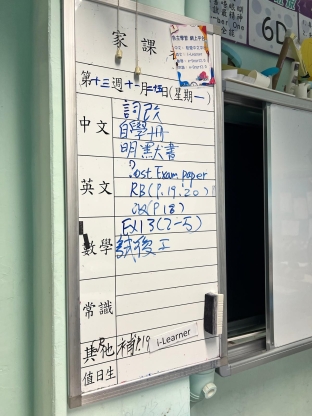 家課
第十三週十一月二十五日(星期一)
中文
詞改
自學冊
明默書
英文
Post Exam paper
RB(P.19.20)
改(P.18)
數學
EX13(2-5)
試後工
常識
其他
補P.19
i-Learner
值日生
6D